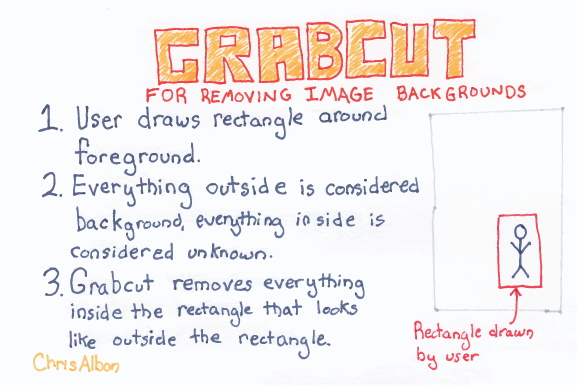 GRABCUT
FOR REMOVING IMAGE BACKGROUNDS
1. User draws rectangle around
foreground.
2. Everything outside is considered
background, everything inside is
considered unknown.
3. Grabcut removes everything
inside the rectangle that looks
like outside the rectangle.
Rectangle drawn
by user
Chris Albon